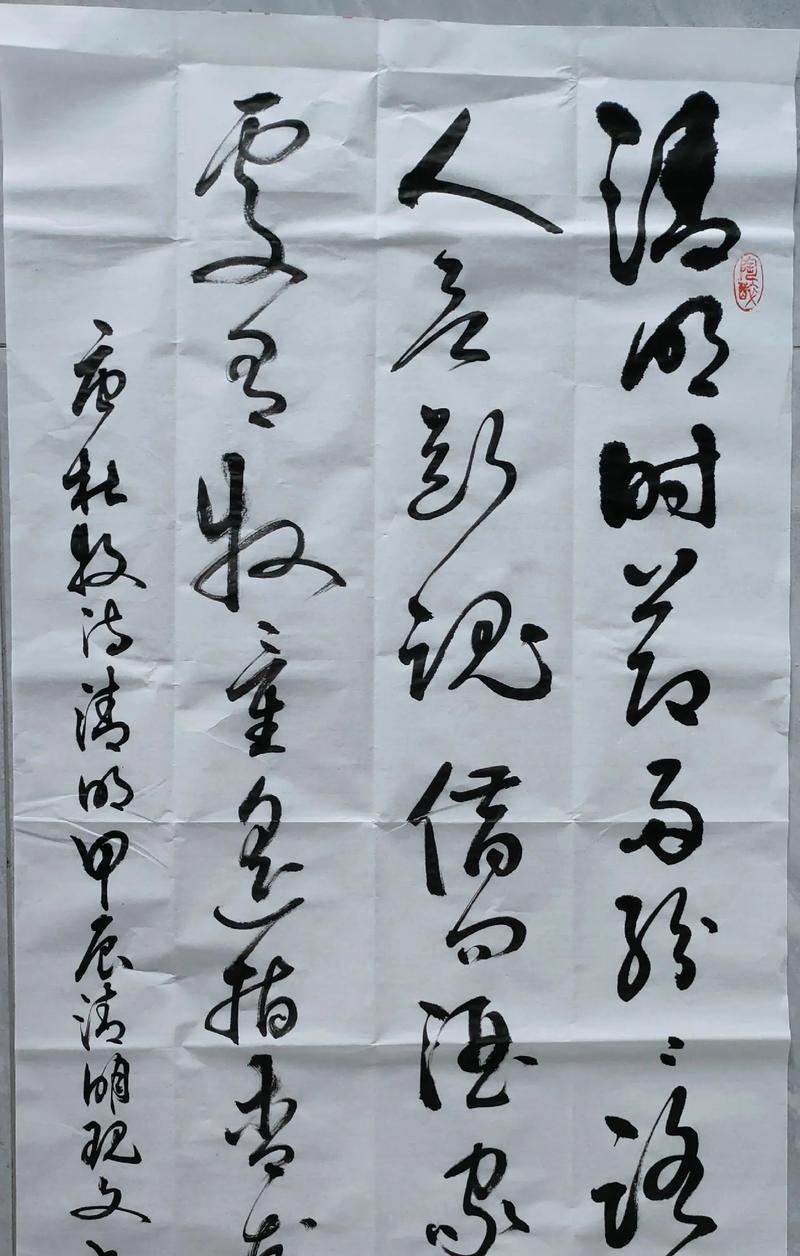 清明时节雨纷〻路
人欲断魂借问酒家
處有牧童遥指杏花
唐杜牧诗清明甲辰清明现文
陶醉